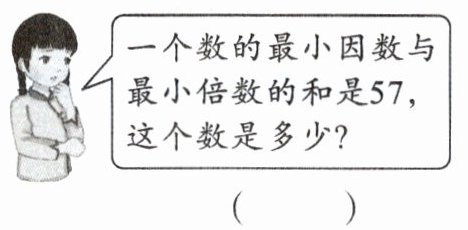 一个数的最小因数与
最小倍数的和是57,
这个数是多少?
(        )